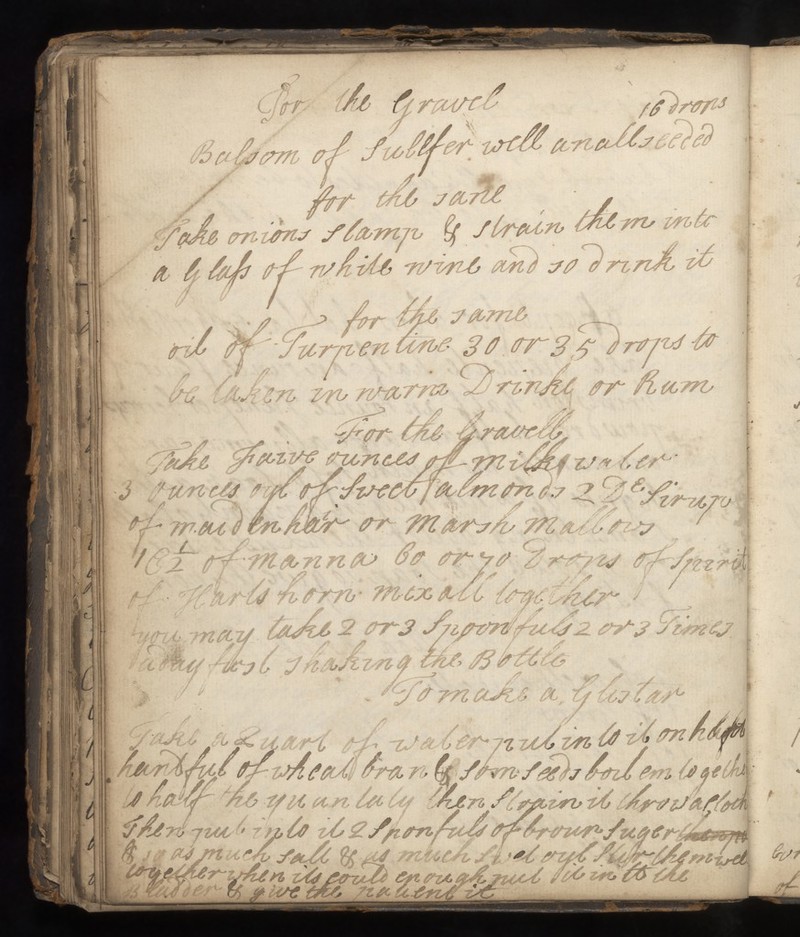 For the Gravel
16 drops
Balsom of Sullfer well anallseeded
for the same
Take onions stamp & strain them into
a Glass of white wine and so drink it
for the same
oil of Turpentine 30 or 35 drops to
be taken in warm Drinke or Rum
For the Gravell
Take Faive ounces of milk water
3 ounces oyl of Sweet almonds 2 De Sirup
of maidenhair or marsh mallows
1 ½ of manna 60 or 70 Drops of Spirit
of Harts horn mix all together
you may take 2 or 3 Spoonfuls 2 or 3 Times
aday first shaking the Bottle
To make a Glistar
Take a Quart of water put in to it on
handful of wheat bran & som seeds boil em togethe
to half the quantaty then strain it throw a cloth
Then put into it 2 Sponfuls of broun Suger
& so as much salt & as much Swet oyl Stur them wel
together when its could enough put it in to the
Bladder & give the patient it